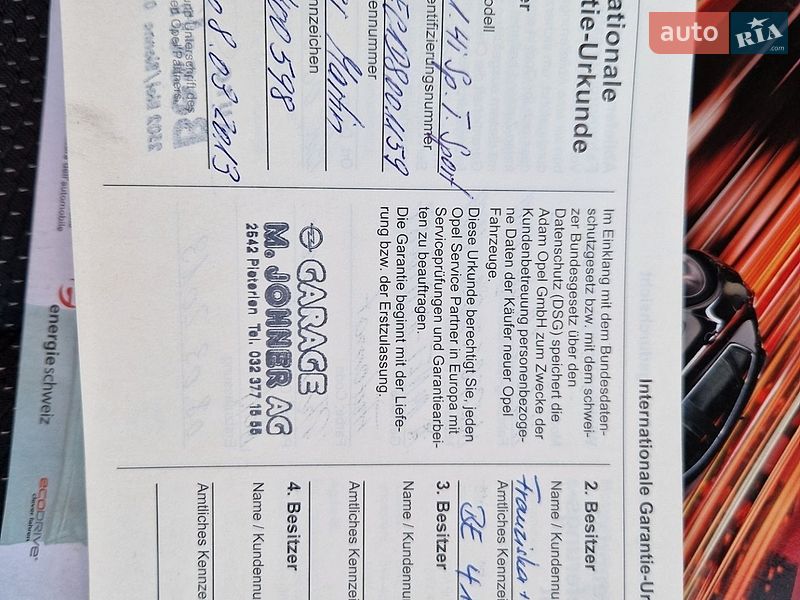 auto RIA
.com
Internationale Garantie-Ur
tionale
tie-Urkunde
er
odell
1.4i Sp. T. Sport
entifizierungsnummer
ennummer
Martin
nnzeichen
400598
08.03.2013
Im Einklang mit dem Bundesdaten-
schutzgesetz bzw. mit dem schwei-
zer Bundesgesetz über den
Datenschutz (DSG) speichert die
Adam Opel GmbH zum Zwecke der
Kundenbetreuung personenbezoge-
ne Daten der Käufer neuer Opel
Fahrzeuge.
Diese Urkunde berechtigt Sie, jeden
Opel Service Partner in Europa mit
Serviceprüfungen und Garantiearbei-
ten zu beauftragen.
Die Garantie beginnt mit der Liefe-
rung bzw. der Erstzulassung.
GARAGE
M. JOHNER AG
2542 Pieterlen Tel. 032 377 15 55
2. Besitzer
Name / Kundennu
Franziska
Amtliches Kennze
BE 41
3. Besitzer
Name / Kundennu
Amtliches Kennzei
4. Besitzer
Name / Kundennu
Amtliches Kennze
dell'automobile
energieschweiz
ECODRIVE
clever fahren